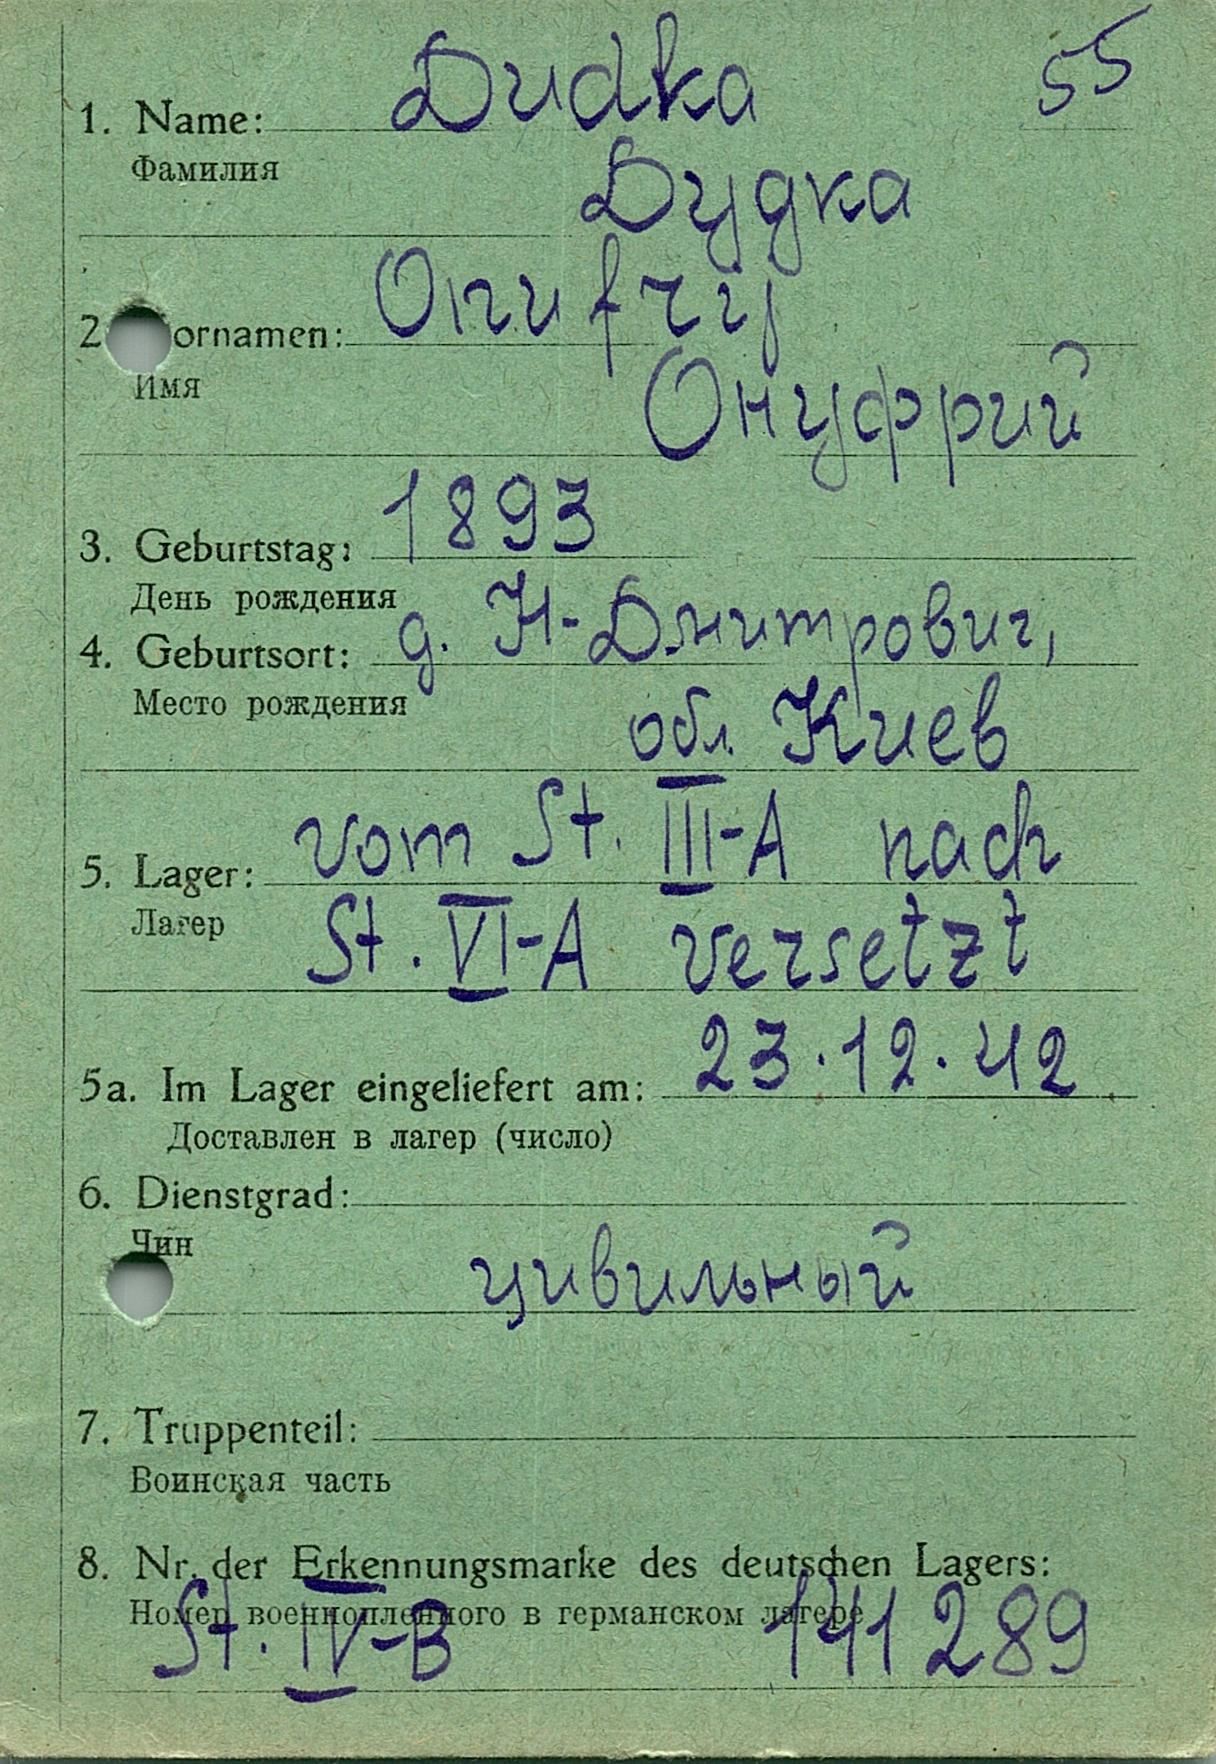 55
1. Name: Dudka
Фамилия
Дудка
2 ornamen: Onufrij
Имя
Онуфрий
3. Geburtstag: 1893
День рождения
4. Geburtsort: д. Н-Дмитрович,
Место рождения
обл. Киев
5. Lager: vom St. III-A nach
Лагер
St. VI-A versetzt
5a. Im Lager eingeliefert am: 23.12.42
Доставлен в лагер (число)
6. Dienstgrad:
Чин
цивильный
7. Truppenteil:
Воинская часть
8. Nr. der Erkennungsmarke des deutschen Lagers:
Номер военнопленного в германском лагере
St. IV-B 141289